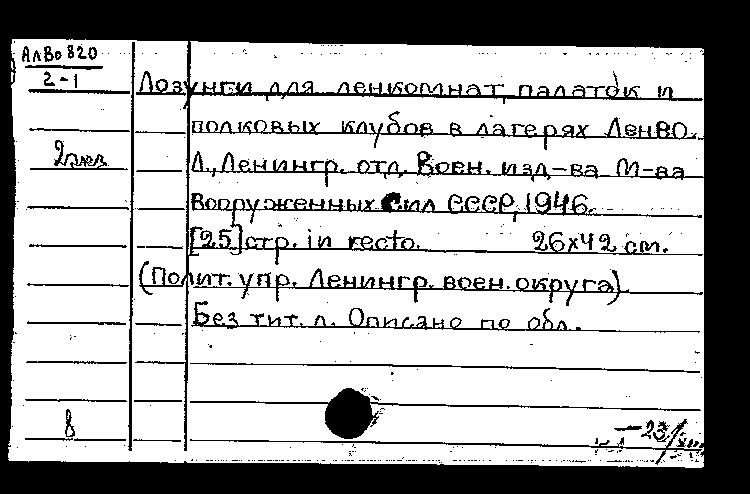 АлВо 820
2-1
Лозунги для ленкомнат, палаток и
полковых клубов в лагерях ЛенВО.
2 экз
Л., Ленингр. отд. Воен. изд-ва М-ва
Вооруженных Сил СССР, 1946.
[25] стр. in recto. 26х42 см.
(Полит. упр. Ленингр. воен. округа).
Без тит. л. Описано по обл.
8
-23/